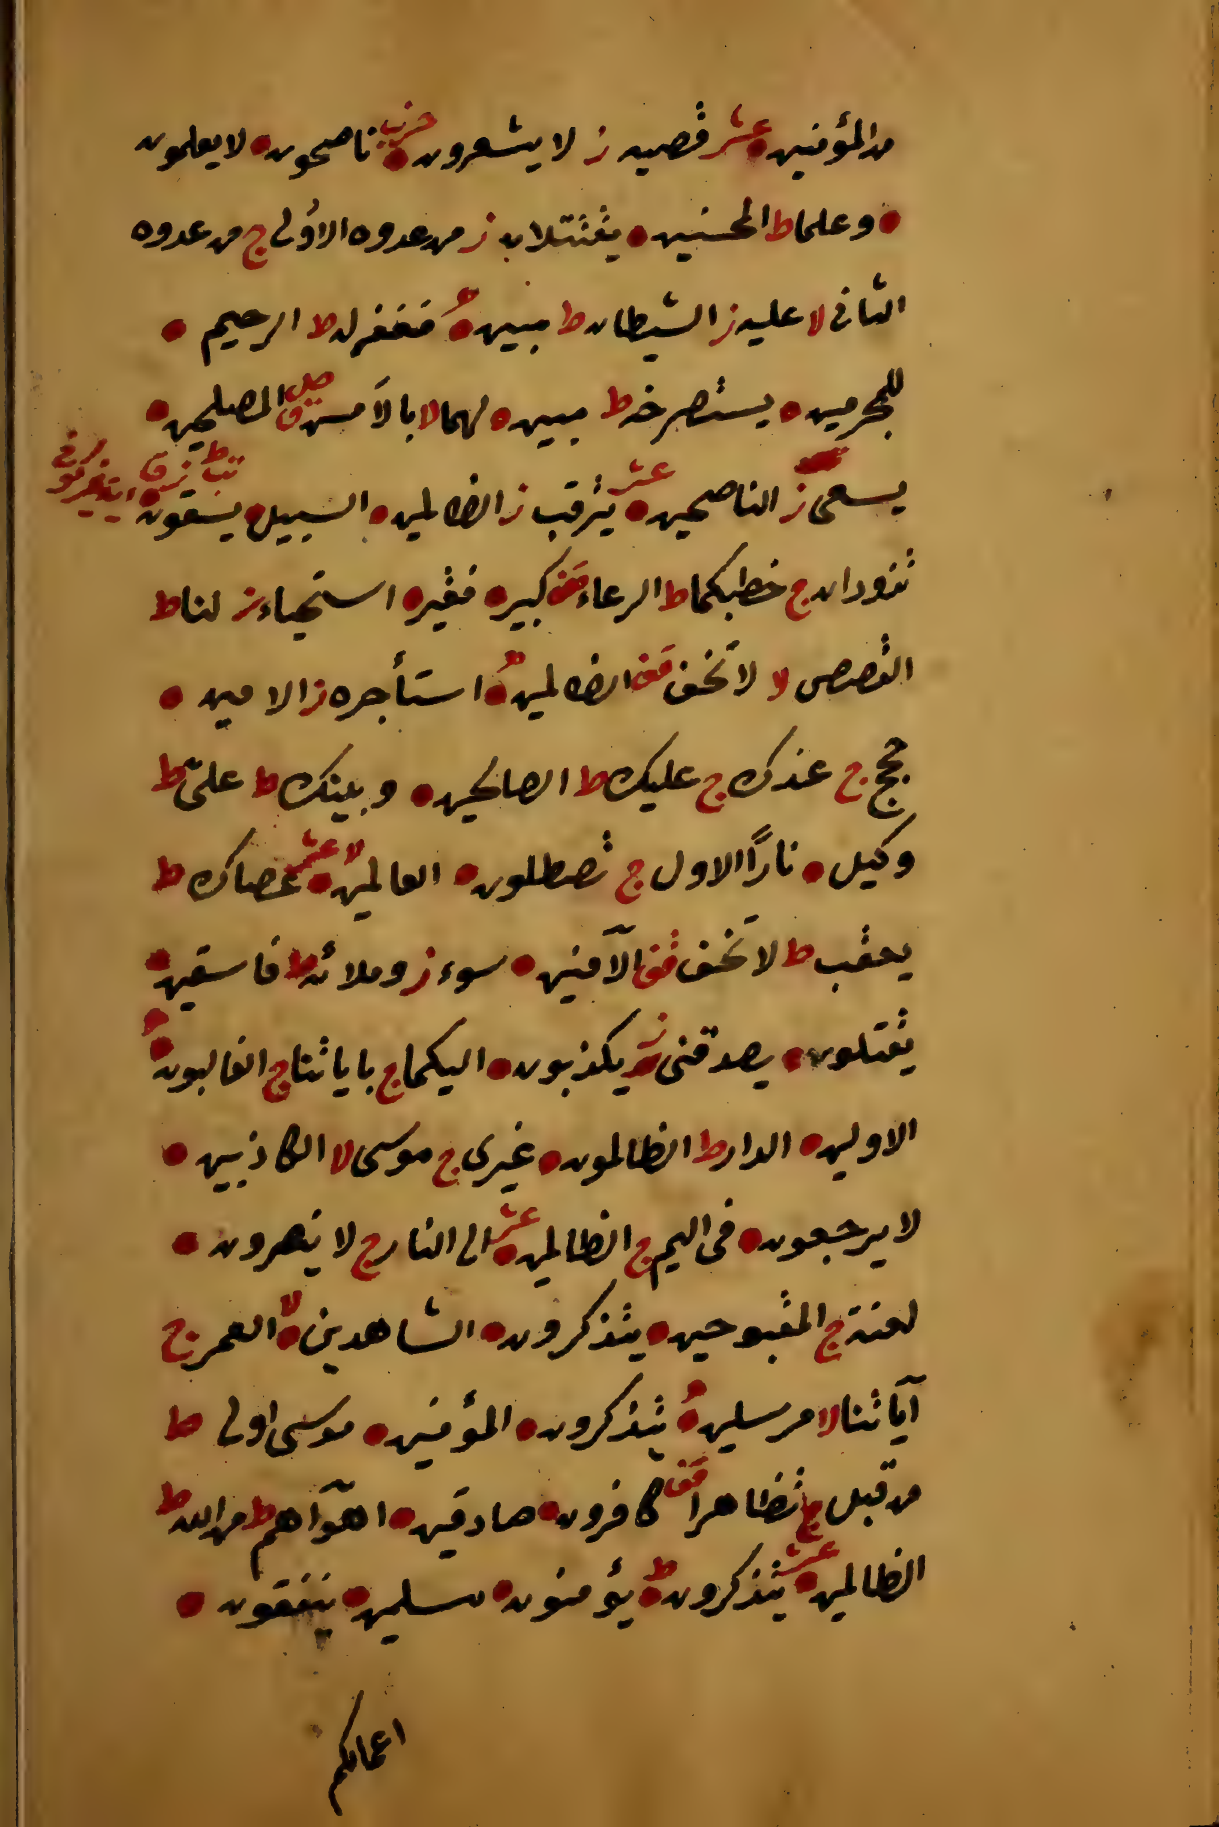 من المؤمنين ● عشر قصيه ز لا يشعرون ● حزب ناصحون ● لا يعلمون
● وعلما ط المحسنين ● يقتتلان ز من عدوه الاولى ج من عدوه
الثانى لا عليه ز الشيطان ط مبين ● فغفر له ط الرحيم ●
للمجرمين ● يستصرخه ط مبين ● لهما لا بالامس ق صل المصلحين ●
يسعى ز الناصحين ● عشر يترقب ز الظالمين ● السبيل ● يسقون ●
تذودان ج خطبكما ط الرعاء قف كبير ● فقير ● استحياء ز لنا ط
القصص لا لا تخف قف الظالمين ● استأجره ز الامين ●
حجج ج عندك ج عليك ط الصالحين ● وبينك ط علىّ ط
وكيل ● نارًا الاول ج تصطلون ● العالمين ● لا عشر عصاك ط
يعقب ط لا تخف قف الآمنين ● سوء ز وملائه ط فاسقين ●
يقتلون ● يصدقنى ز يكذبون ● اليكما ج باياتنا ج الغالبون ●
الاولين ● الدار ط الظالمون ● غيرى ج موسى لا الكاذبين ●
لا يرجعون ● فى اليم ج الظالمين ● عشر الى النار ج لا ينصرون ●
لعنة ج المقبوحين ● يتذكرون ● الشاهدين ● لا العمر ج
آياتنا لا مرسلين ● يتذكرون ● المؤمنين ● موسى اولى ط
من قبل ج تظاهرا قف كافرون ● صادقين ● اهوآءهم ط من الله ط
الظالمين ● عشر يتذكرون ● ط يؤمنون ● مسلمين ● ينفقون ●
اعمالكم